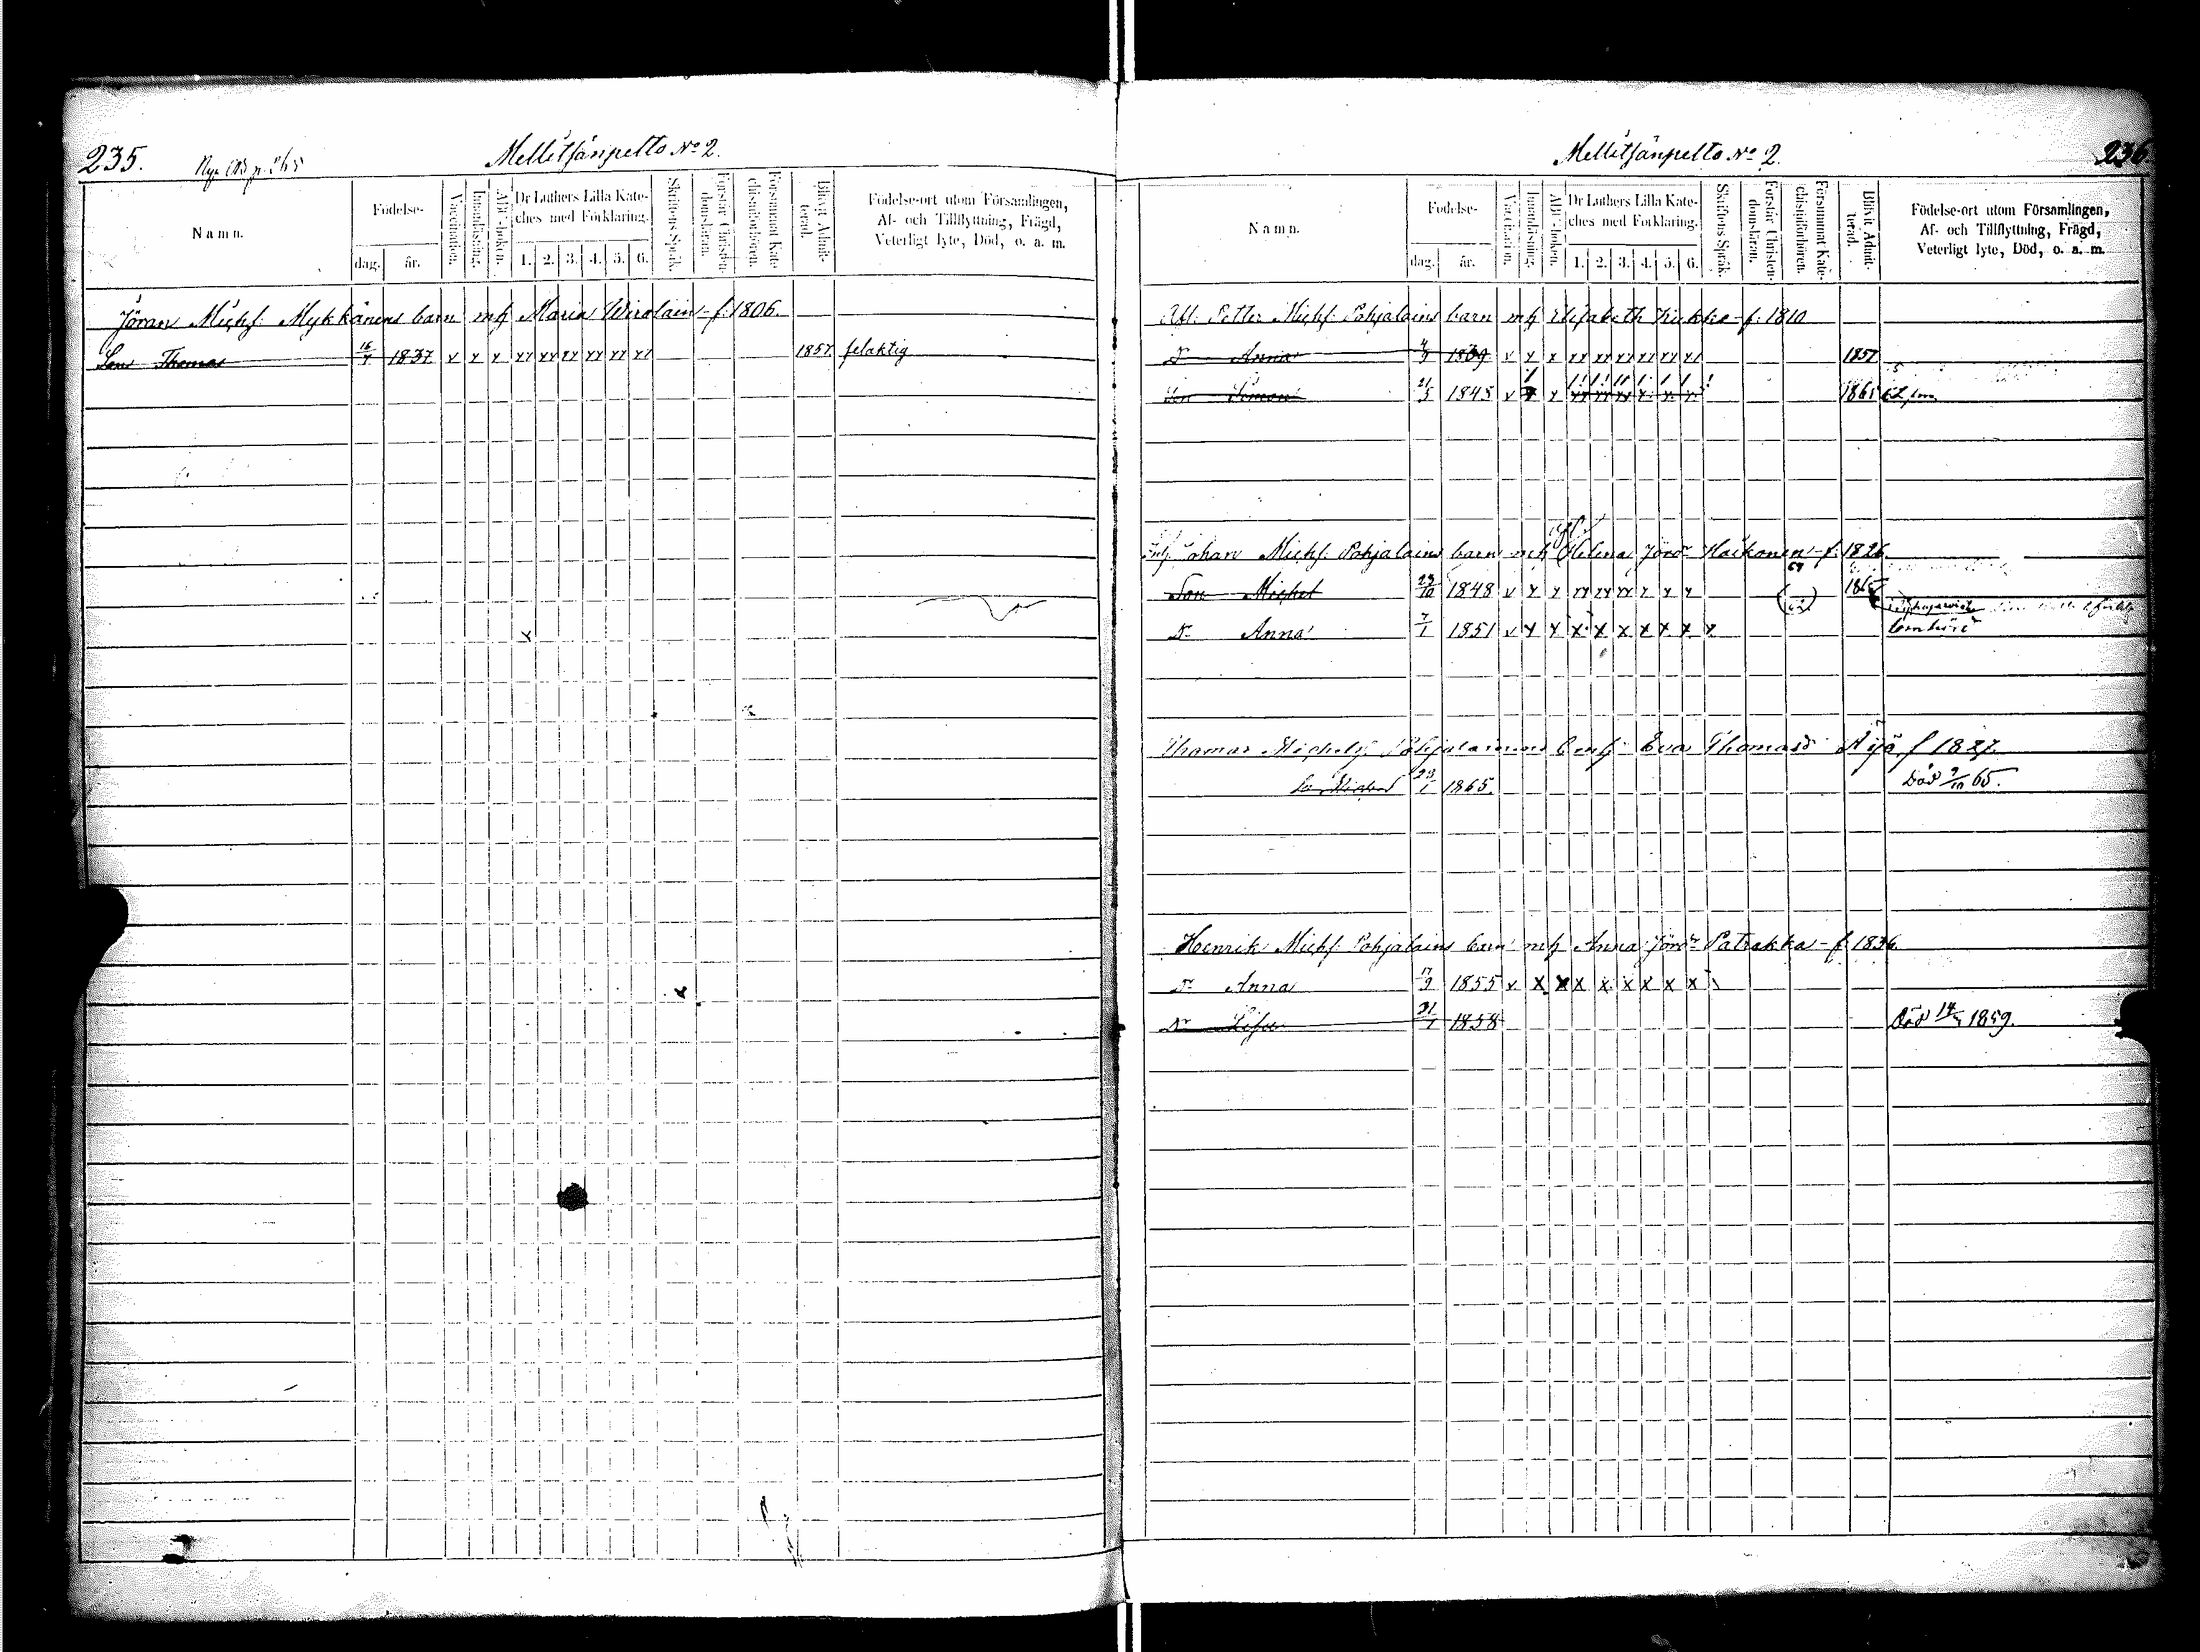 235.
Mellitsänpelto No 2.
Namn.
Födelse-
dag.
år.
Vaccination.
Innanläsning.
ABC-boken.
Dr Luthers Lilla Kate-
ches med Förklaring.
1. 2. 3. 4. 5. 6.
Skriftens Språk.
Förstår Christen-
domsläran.
Försummat Kate-
chismiförhören.
Blivit Admit-
terad.
Födelse-ort utom Församlingen,
Af- och Tillflyttning, Frägd,
Veterligt lyte, Död, o. a. m.
Jöran Michs. Mykkänens barn mh Maria Wirolain - f. 1806.
Son Thomas 1837 v x x xx xx xx xx xx xx 1857 felaktig
Mellitsänpelto No 2.
236
Namn.
Födelse-
dag.
år.
Vaccination.
Innanläsning.
ABC-boken.
Dr Luthers Lilla Kate-
ches med Förklaring.
1. 2. 3. 4. 5. 6.
Skriftens Språk.
Förstår Christen-
domsläran.
Försummat Kate-
chismiförhören.
Blivit Admit-
terad.
Födelse-ort utom Församlingen,
Af- och Tillflyttning, Frägd,
Veterligt lyte, Död, o. a. m.
Afl. Petter Michs. Pohjalains barn mh Elisabeth Kukko - f. 1810
Dr Anna 1839 v x x xx xx xx xx xx xx 1857
Son Simon 21/5 1845 v x x
Johan Michs. Pohjalains barn mh Helena Jördr Haikonen - f. 1826
Son Michel 29/10 1848 v x x xx xx xx x x x
Dr Anna 7/1 1851 v x x x x x x x x x
Thomas Michels. Pohjalainens b mh Eva Thomasd. Äijä f 1827
So Michel 29/1 1865. Död 9/10 65.
Henrik Michs. Pohjalains barn mh Anna Jördr Patrakka - f. 1836
Dr Anna 17/9 1855 v x x x x x x x x
Dr Lisa 31/1 1858 Död 1859.